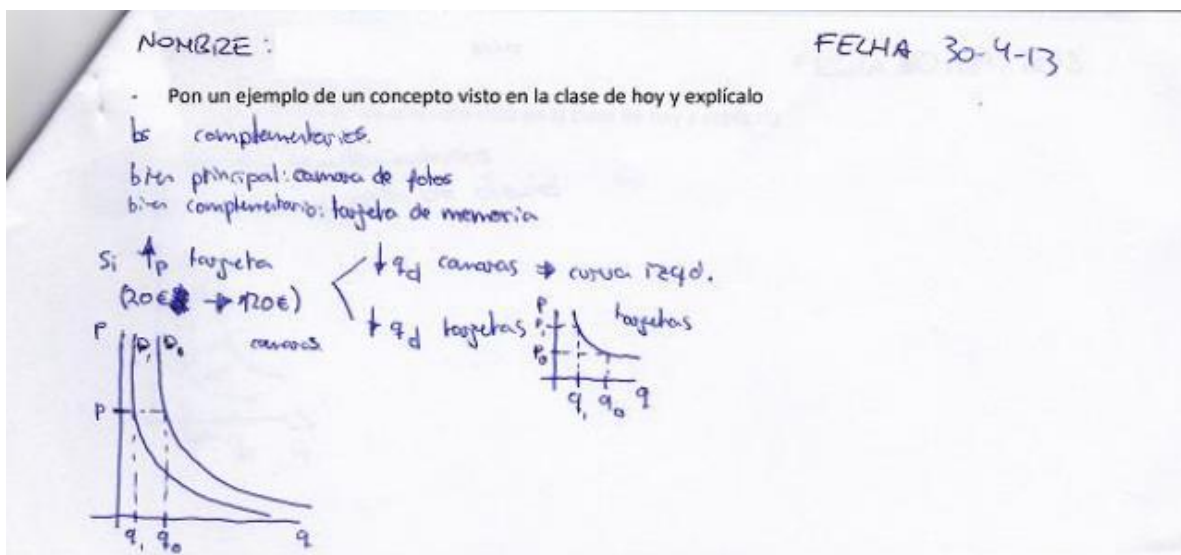 NOMBRE :
FECHA 30-4-13
- Pon un ejemplo de un concepto visto en la clase de hoy y explícalo
bs complementarios.
bien principal: camara de fotos
bien complementario: tarjeta de memoria
Si ↑p targeta
(20€ → 120€)
↓ qd camaras ⇒ curva izqd.
↓ qd targetas
P
P1
P0
targetas
q1 q0 q
P D1 D0 camaras
P
q1 q0 q